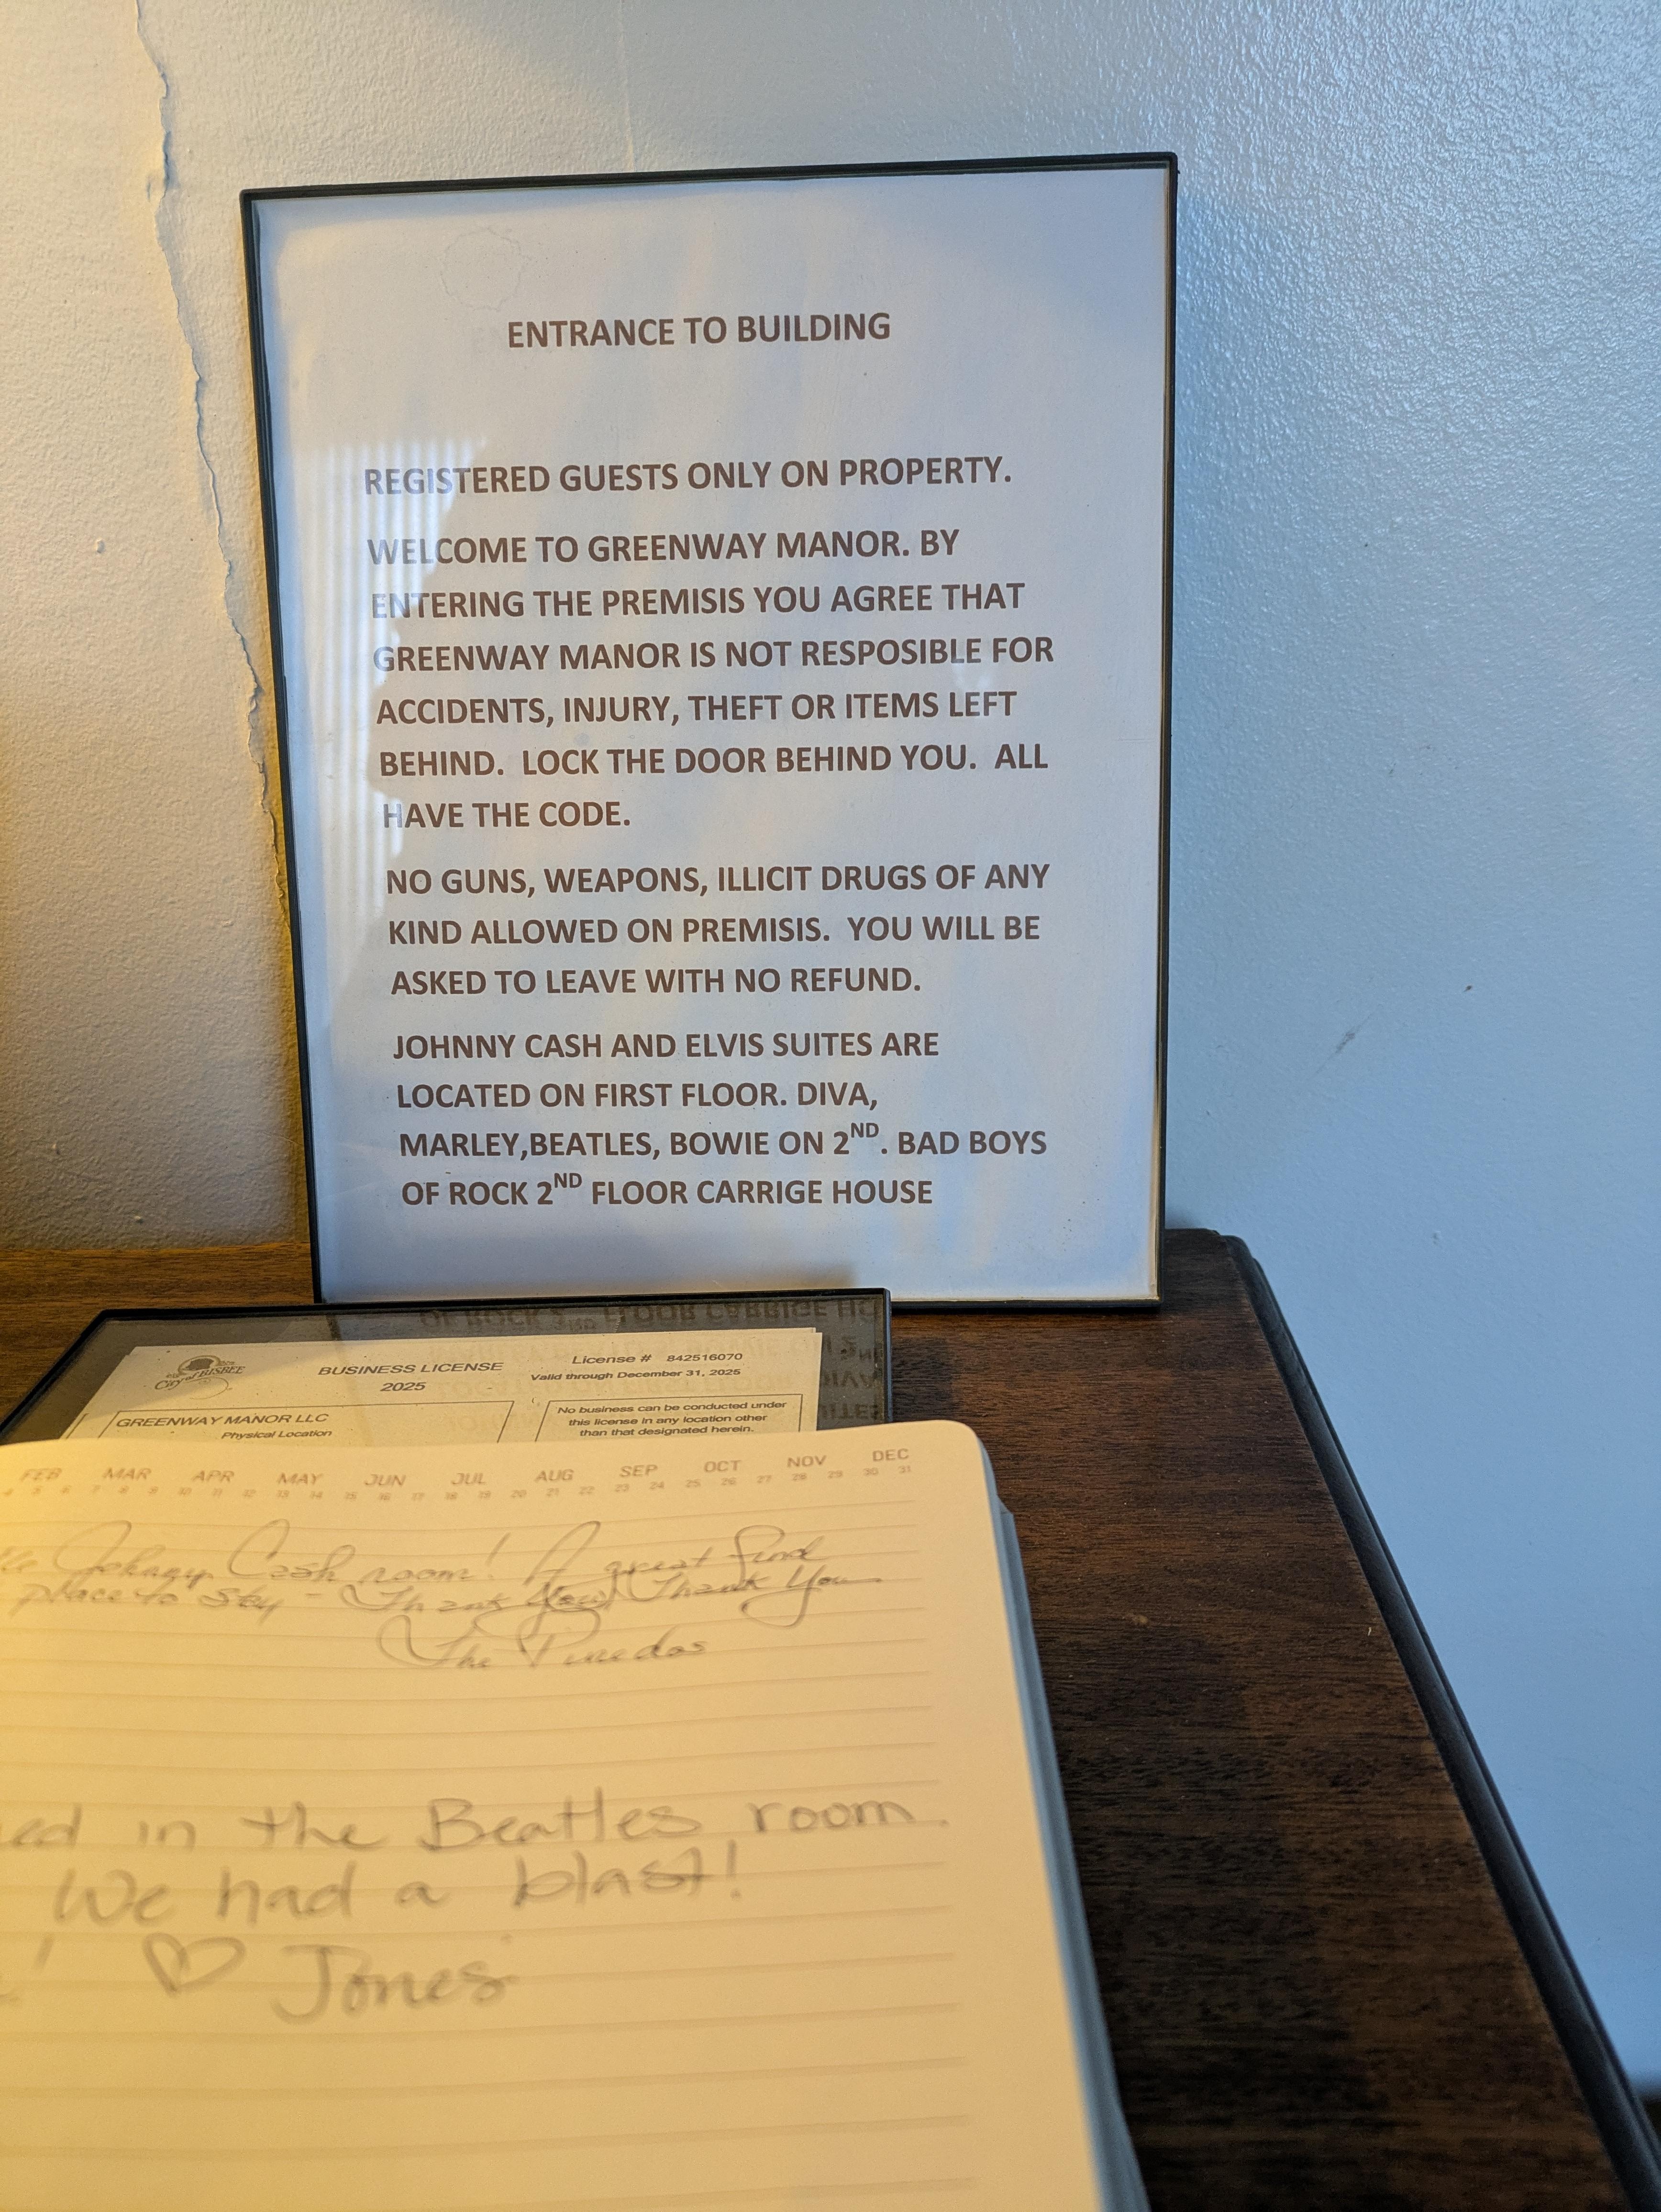 ENTRANCE TO BUILDING
REGISTERED GUESTS ONLY ON PROPERTY.
WELCOME TO GREENWAY MANOR. BY
ENTERING THE PREMISIS YOU AGREE THAT
GREENWAY MANOR IS NOT RESPOSIBLE FOR
ACCIDENTS, INJURY, THEFT OR ITEMS LEFT
BEHIND. LOCK THE DOOR BEHIND YOU. ALL
HAVE THE CODE.
NO GUNS, WEAPONS, ILLICIT DRUGS OF ANY
KIND ALLOWED ON PREMISIS. YOU WILL BE
ASKED TO LEAVE WITH NO REFUND.
JOHNNY CASH AND ELVIS SUITES ARE
LOCATED ON FIRST FLOOR. DIVA,
MARLEY,BEATLES, BOWIE ON 2ND. BAD BOYS
OF ROCK 2ND FLOOR CARRIGE HOUSE
City of BISBEE
BUSINESS LICENSE
2025
License # 842516070
Valid through December 31, 2025
GREENWAY MANOR LLC
Physical Location
No business can be conducted under
this license in any location other
than that designated herein.
FEB MAR APR MAY JUN JUL AUG SEP OCT NOV DEC
4 5 6 7 8 9 10 11 12 13 14 15 16 17 18 19 20 21 22 23 24 25 26 27 28 29 30 31
Johnny Cash room! A great find
place to stay - Thank You, Thank You
The
in the Beatles room.
We had a blast!
! ♡ Jones